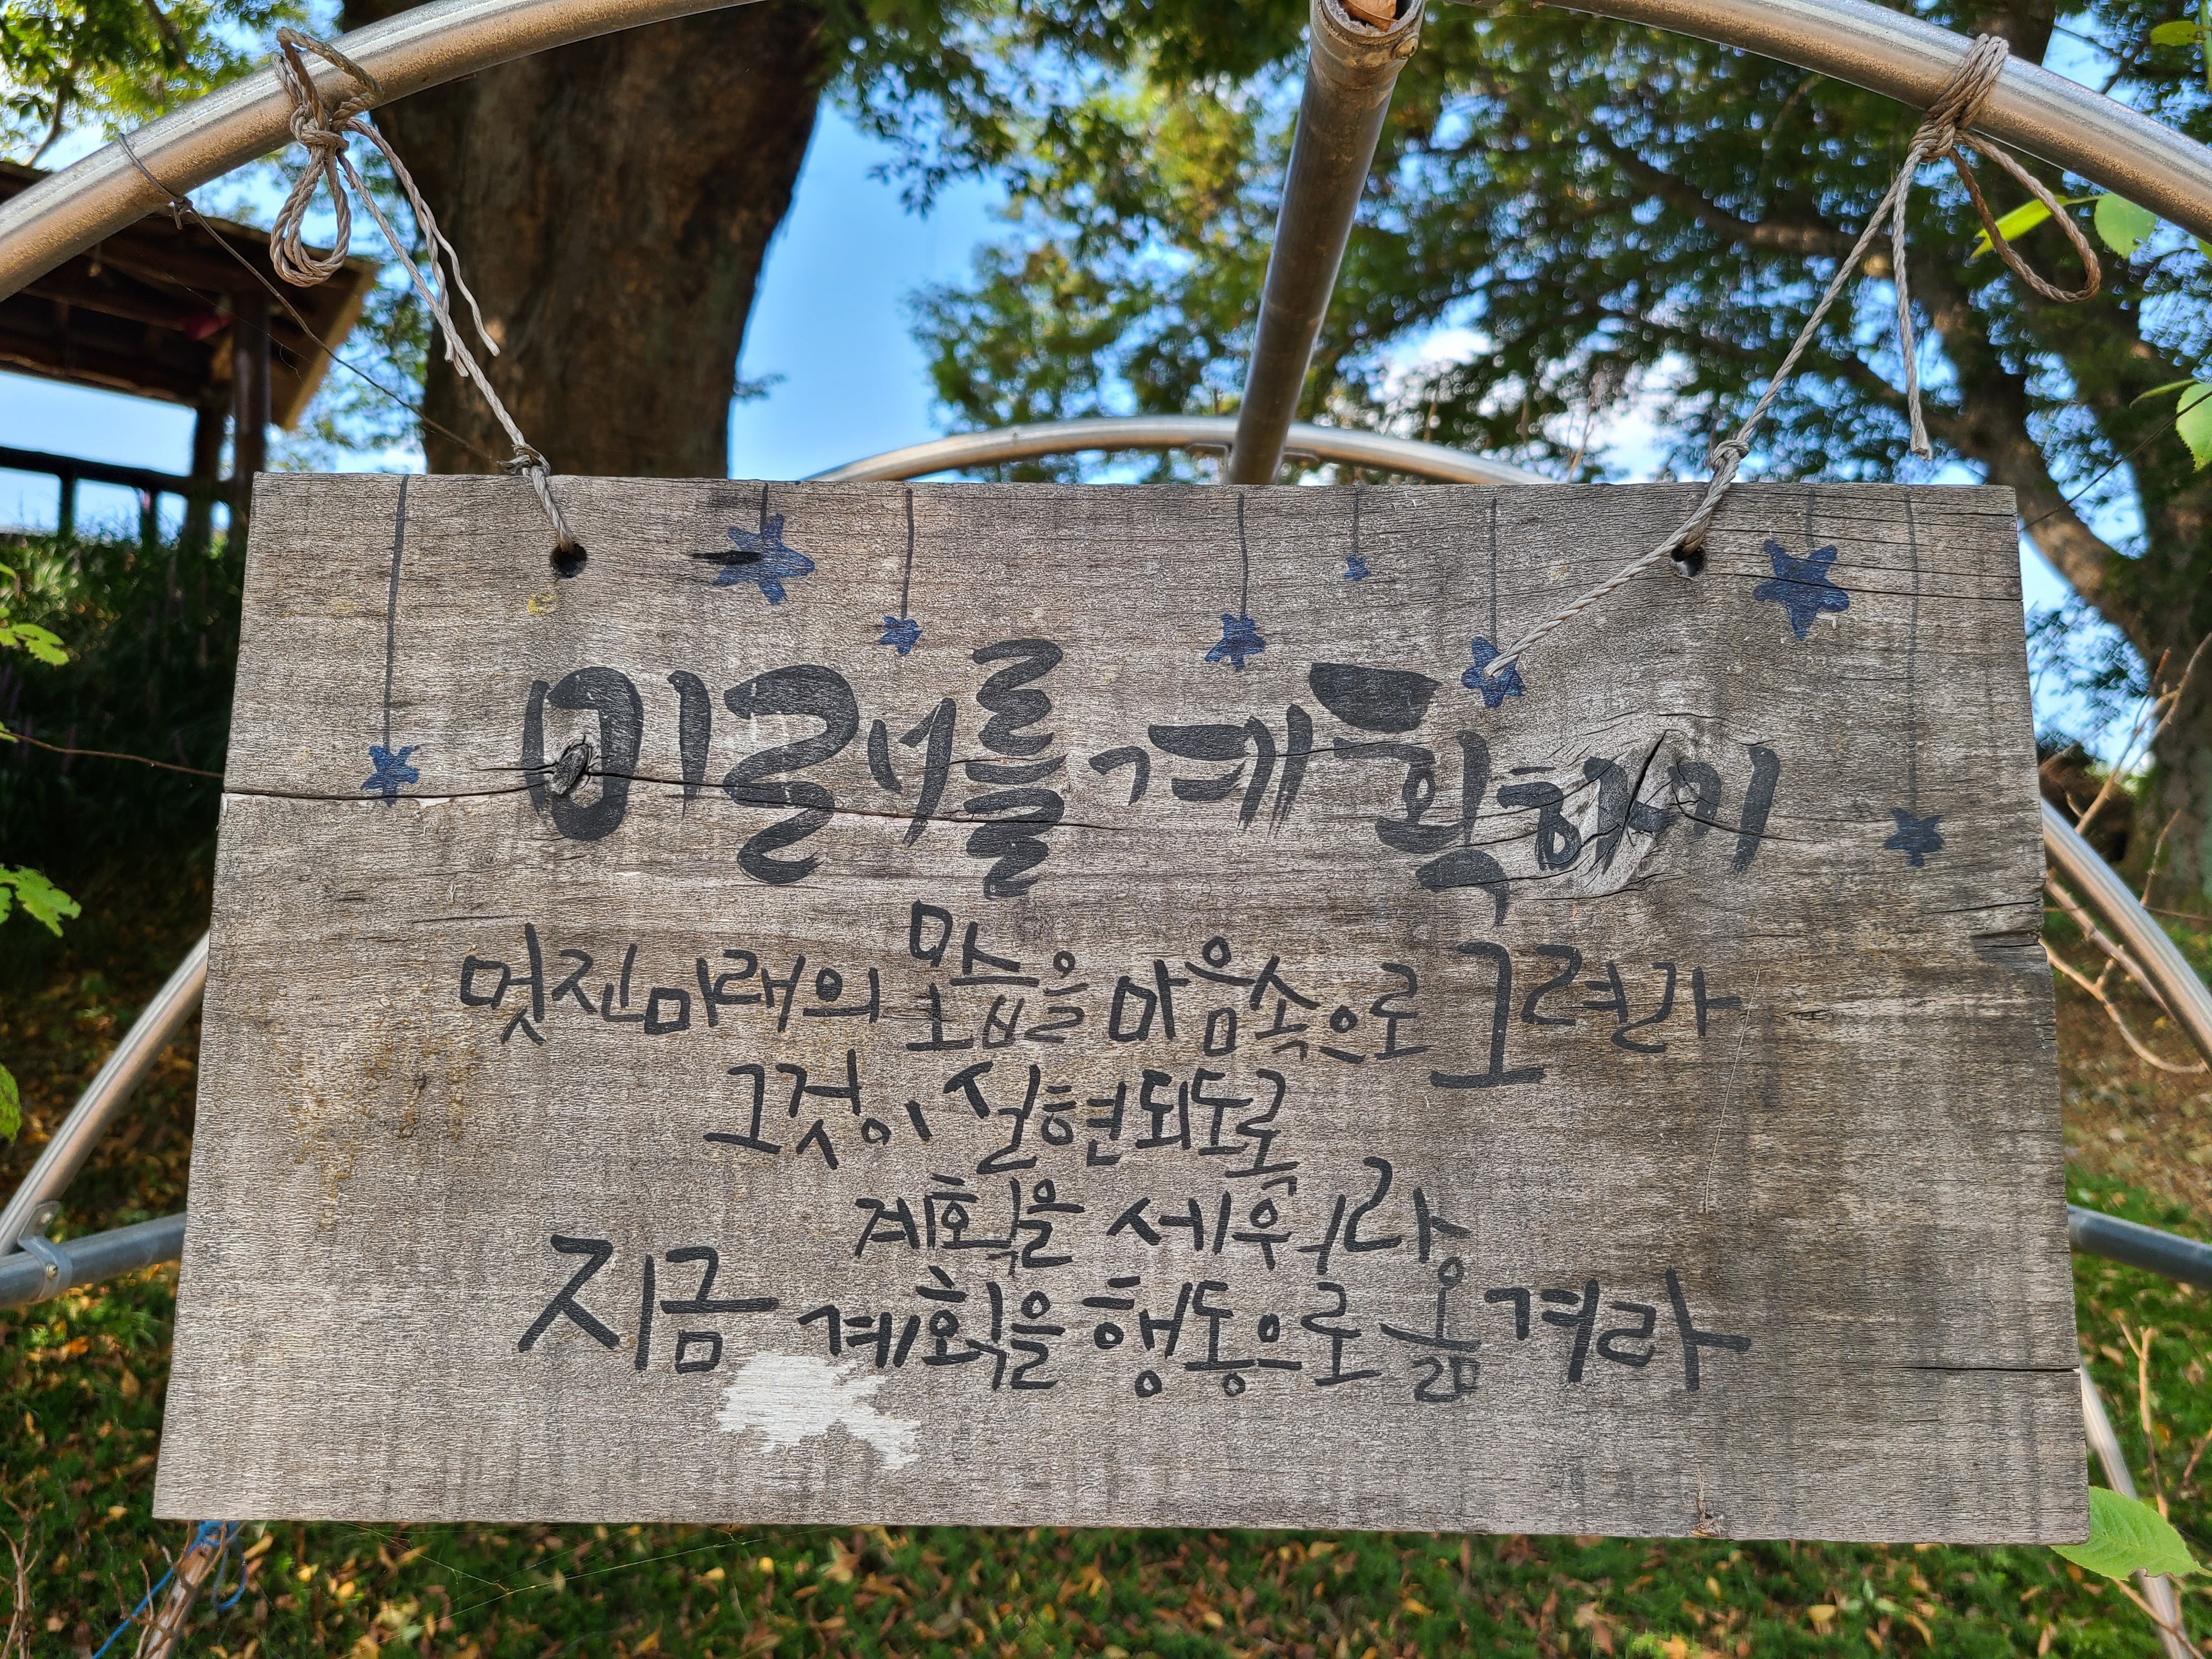 미래를 계획하기
멋진 미래의 모습을 마음속으로 그려라
그것이 실현되도록
계획을 세워라
지금 계획을 행동으로 옮겨라